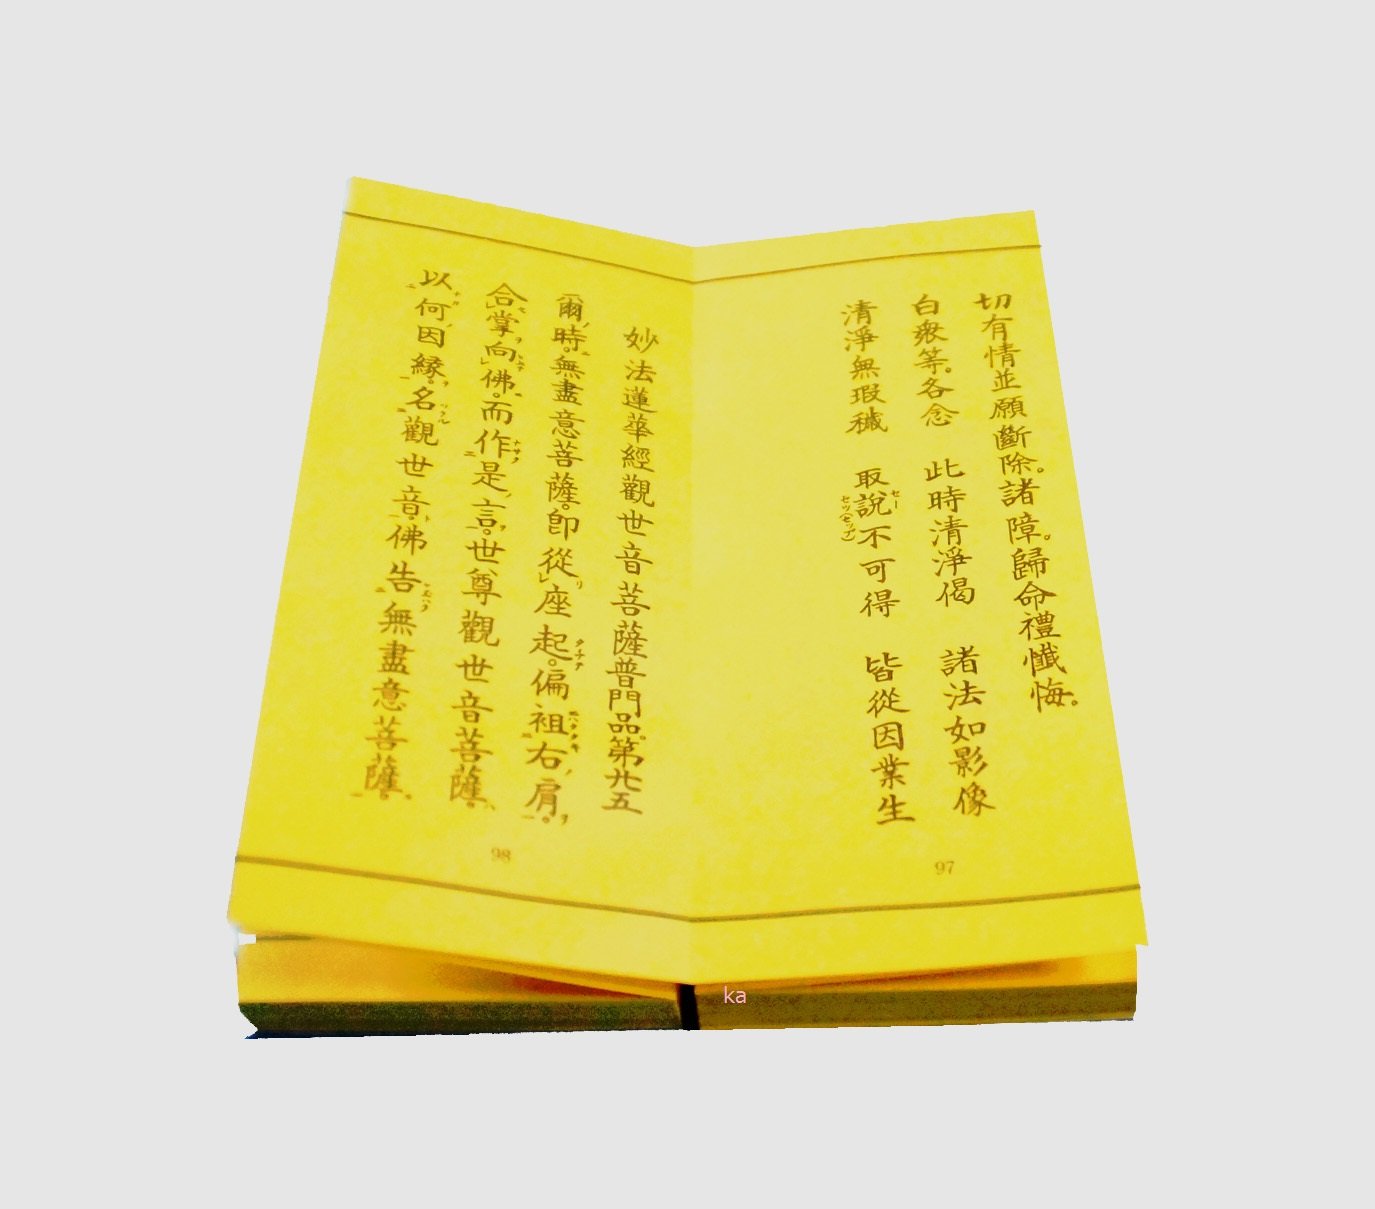 切有情並願斷除。諸障。歸命禮懺悔。
白衆等。各念 此時清淨偈 諸法如影像
清淨無瑕穢 取說不可得 皆從因業生
セー
セツ(セッア)
97
妙法蓮華經觀世音菩薩普門品。第廿五
爾時。無盡意菩薩。卽從座起。偏袒右肩。
合掌向佛。而作是言。世尊觀世音菩薩。
以何因縁。名觀世音。佛告無盡意菩薩。
98
ka